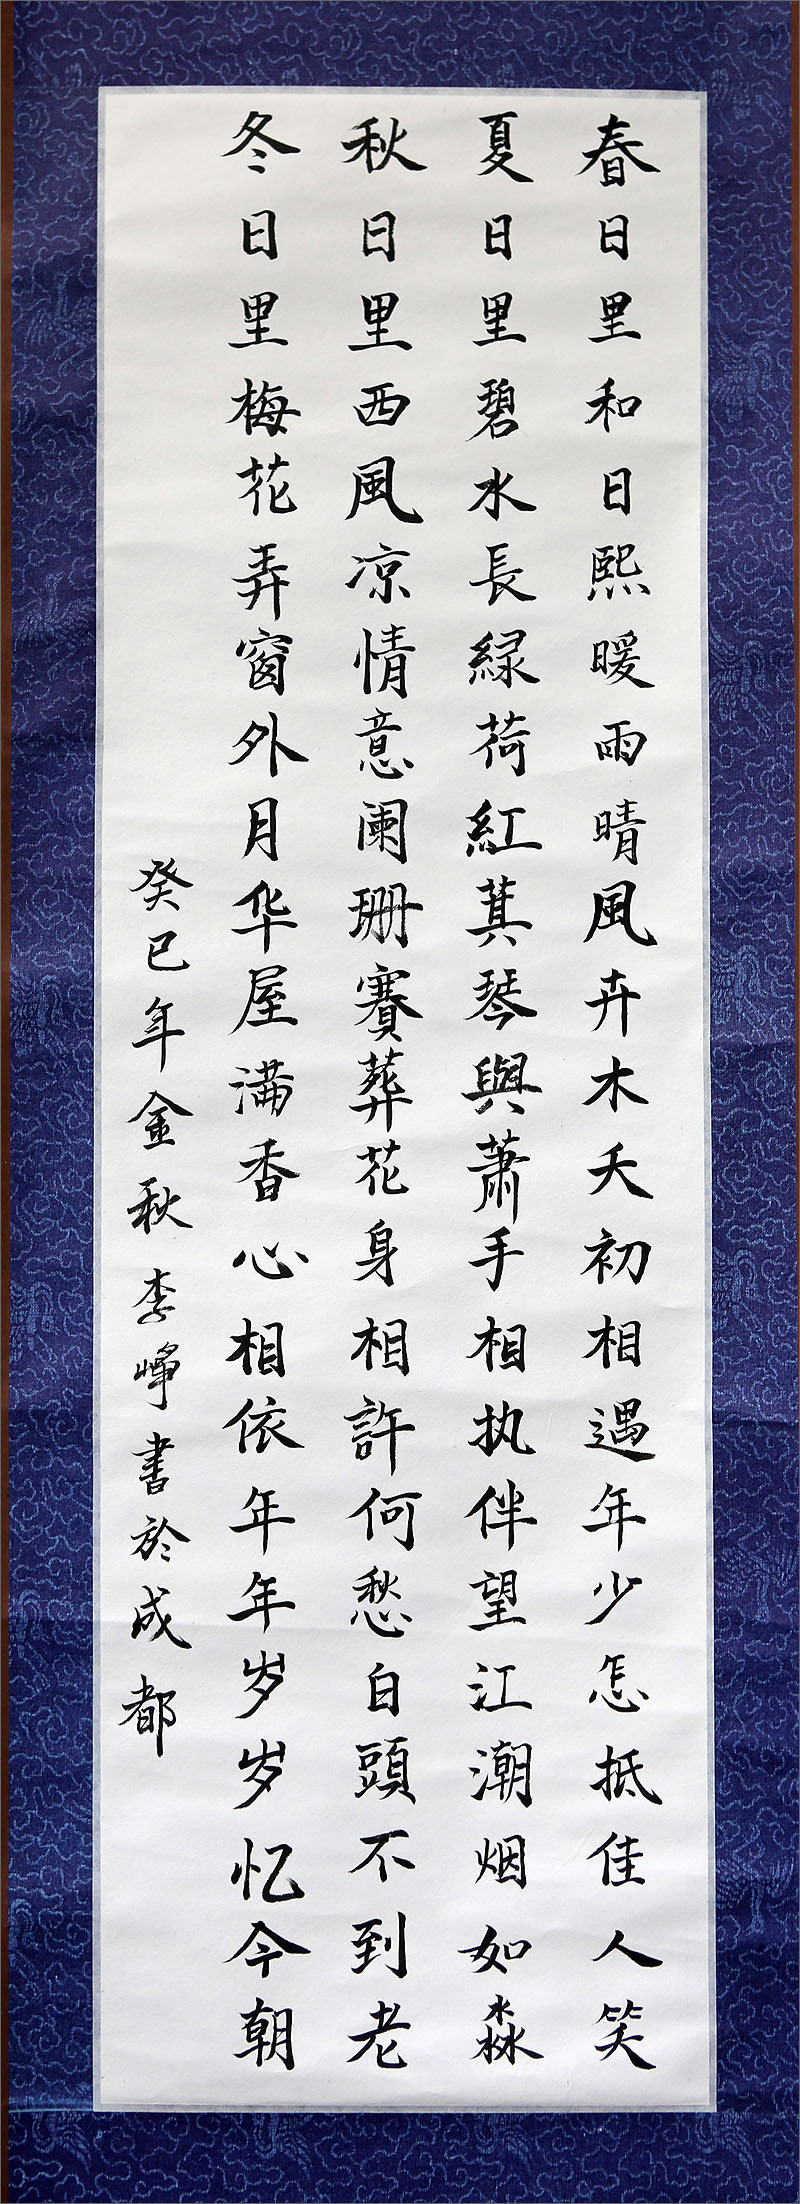 春日里和日熙暖雨晴風卉木夭初相遇年少怎抵佳人笑
夏日里碧水長緑荷紅萁琴與蕭手相执伴望江潮烟如淼
秋日里西風凉情意阑珊賽葬花身相許何愁白頭不到老
冬日里梅花弄窗外月华屋满香心相依年年岁岁忆今朝
癸巳年金秋李峥書於成都